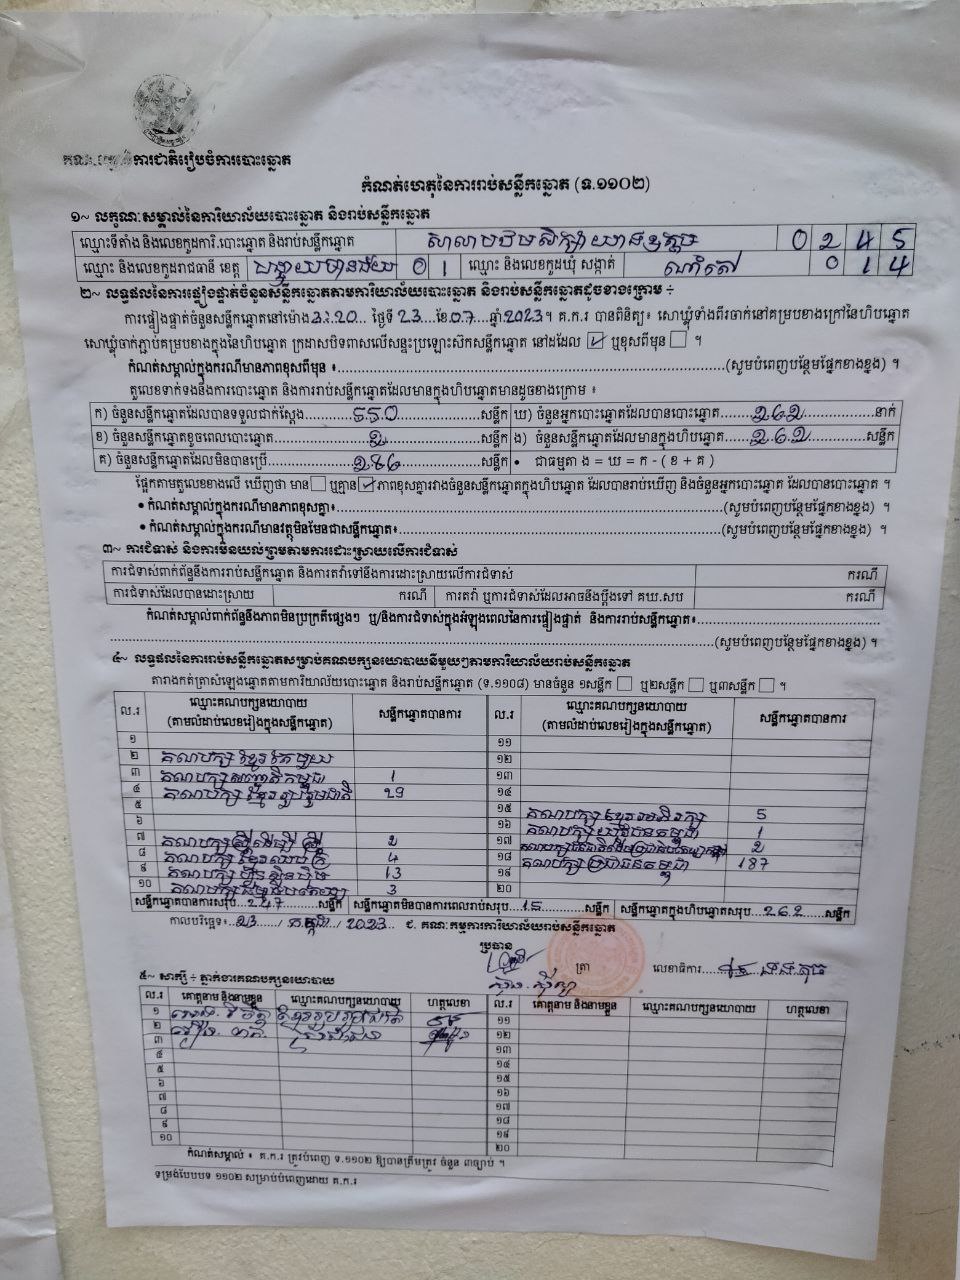 ការជាតិរៀបចំការបោះឆ្នោត
កំណត់ហេតុនៃការរាប់សន្លឹកឆ្នោត (ទ.១១០២)
១~ លក្ខណៈសម្គាល់នៃការិយាល័យបោះឆ្នោត និងរាប់សន្លឹកឆ្នោត
ឈ្មោះទីតាំង និងលេខកូដការិ.បោះឆ្នោត និងរាប់សន្លឹកឆ្នោត សាលាបឋមសិក្សា 0 2 4 5
ឈ្មោះ និងលេខកូដរាជធានី ខេត្ត បន្ទាយមានជ័យ 0 1 ឈ្មោះ និងលេខកូដឃុំ សង្កាត់ ណាំតៅ 0 1 4
២~ លទ្ធផលនៃការផ្ទៀងផ្ទាត់ចំនួនសន្លឹកឆ្នោតតាមការិយាល័យបោះឆ្នោត និងរាប់សន្លឹកឆ្នោតដូចខាងក្រោម ÷
ការផ្ទៀងផ្ទាត់ចំនួនសន្លឹកឆ្នោតនៅម៉ោង ថ្ងៃទី 23 ខែ 07 ឆ្នាំ 2023។ គ.ក.រ បានពិនិត្យ៖ សោឃ្លុំទាំងពីរចាក់នៅគម្របខាងក្រៅនៃហិបឆ្នោត
សោឃ្លុំចាក់ភ្ជាប់គម្របខាងក្នុងនៃហិបឆ្នោត ក្រដាសបិទពាសលើសន្ទះប្រឡោះសិកសន្លឹកឆ្នោត នៅដដែល ☑ ឬខុសពីមុន ☐ ។
កំណត់សម្គាល់ក្នុងករណីមានភាពខុសពីមុន ៖ (សូមបំពេញបន្ថែមផ្នែកខាងខ្នង) ។
តួលេខទាក់ទងនឹងការបោះឆ្នោត និងការរាប់សន្លឹកឆ្នោតដែលមានក្នុងហិបឆ្នោតមានដូចខាងក្រោម ៖
ក) ចំនួនសន្លឹកឆ្នោតដែលបានទទួលជាក់ស្តែង 550 សន្លឹក ឃ) ចំនួនអ្នកបោះឆ្នោតដែលបានបោះឆ្នោត 262 នាក់
ខ) ចំនួនសន្លឹកឆ្នោតខូចពេលបោះឆ្នោត 2 សន្លឹក ង) ចំនួនសន្លឹកឆ្នោតដែលមានក្នុងហិបឆ្នោត 262 សន្លឹក
គ) ចំនួនសន្លឹកឆ្នោតដែលមិនបានប្រើ 286 សន្លឹក • ជាធម្មតា ង = ឃ = ក - ( ខ + គ )
ផ្អែកតាមតួលេខខាងលើ ឃើញថា មាន ☐ ឬគ្មាន ☑ ភាពខុសគ្នារវាងចំនួនសន្លឹកឆ្នោតក្នុងហិបឆ្នោត ដែលបានរាប់ឃើញ និងចំនួនអ្នកបោះឆ្នោត ដែលបានបោះឆ្នោត ។
• កំណត់សម្គាល់ក្នុងករណីមានភាពខុសគ្នា៖ (សូមបំពេញបន្ថែមផ្នែកខាងខ្នង) ។
• កំណត់សម្គាល់ក្នុងករណីមានវត្ថុមិនមែនជាសន្លឹកឆ្នោត៖ (សូមបំពេញបន្ថែមផ្នែកខាងខ្នង) ។
៣~ ការជំទាស់ និងការមិនយល់ព្រមតាមការដោះស្រាយលើការជំទាស់
ការជំទាស់ពាក់ព័ន្ធនឹងការរាប់សន្លឹកឆ្នោត និងការតវ៉ាទៅនឹងការដោះស្រាយលើការជំទាស់ ករណី
ការជំទាស់ដែលបានដោះស្រាយ ករណី ការតវ៉ា ឬការជំទាស់ដែលអាចនឹងប្តឹងទៅ គឃ.សប ករណី
កំណត់សម្គាល់ពាក់ព័ន្ធនឹងភាពមិនប្រក្រតីផ្សេងៗ ឬ/និងការជំទាស់ក្នុងអំឡុងពេលនៃការផ្ទៀងផ្ទាត់ និងការរាប់សន្លឹកឆ្នោត៖
(សូមបំពេញបន្ថែមផ្នែកខាងខ្នង) ។
៤~ លទ្ធផលនៃការរាប់សន្លឹកឆ្នោតសម្រាប់គណបក្សនយោបាយនីមួយៗតាមការិយាល័យរាប់សន្លឹកឆ្នោត
តារាងកត់ត្រាសំឡេងឆ្នោតតាមការិយាល័យបោះឆ្នោត និងរាប់សន្លឹកឆ្នោត (ទ.១១០៨) មានចំនួន ១សន្លឹក ☐ ឬ២សន្លឹក ☐ ឬ៣សន្លឹក ☐ ។
ល.រ ឈ្មោះគណបក្សនយោបាយ (តាមលំដាប់លេខរៀងក្នុងសន្លឹកឆ្នោត) សន្លឹកឆ្នោតបានការ ល.រ ឈ្មោះគណបក្សនយោបាយ (តាមលំដាប់លេខរៀងក្នុងសន្លឹកឆ្នោត) សន្លឹកឆ្នោតបានការ
១ ១១
២ គណបក្សខ្មែរតែមួយ ១២
៣ គណបក្ស កម្ពុជា 1 ១៣
៤ គណបក្សខ្មែររួបរួមជាតិ 29 ១៤
៥ ១៥ គណបក្សខ្មែរអភិរក្ស 5
៦ ១៦ គណបក្សយុវជនកម្ពុជា 1
៧ គណបក្សស្ត្រីដើម្បីស្ត្រី 2 ១៧ 2
៨ គណបក្សខ្មែរឈប់ក្រ 4 ១៨ គណបក្សប្រជាជនកម្ពុជា 187
៩ គណបក្សហ្វ៊ុនស៊ិនប៉ិច 13 ១៩
១០ គណបក្ស 3 ២០
សន្លឹកឆ្នោតបានការសរុប 247 សន្លឹក សន្លឹកឆ្នោតមិនបានការពេលរាប់សរុប 15 សន្លឹក សន្លឹកឆ្នោតក្នុងហិបឆ្នោតសរុប 262 សន្លឹក
កាលបរិច្ឆេទ៖ 23 / កក្កដា / 2023 ជ. គណៈកម្មការការិយាល័យរាប់សន្លឹកឆ្នោត
ប្រធាន
ត្រា លេខាធិការ
៥~ សាក្សី ÷ ភ្នាក់ងារគណបក្សនយោបាយ
ល.រ គោត្តនាម និងនាមខ្លួន ឈ្មោះគណបក្សនយោបាយ ហត្ថលេខា ល.រ គោត្តនាម និងនាមខ្លួន ឈ្មោះគណបក្សនយោបាយ ហត្ថលេខា
១ ខ្មែររួបរួមជាតិ ១១
២ ប្រជាជន ១២
៣ ១៣
៤ ១៤
៥ ១៥
៦ ១៦
៧ ១៧
៨ ១៨
៩ ១៩
១០ ២០
កំណត់សម្គាល់ ៖ គ.ក.រ ត្រូវបំពេញ ទ.១១០២ ឱ្យបានត្រឹមត្រូវ ចំនួន ៣ច្បាប់ ។
ទម្រង់បែបបទ ១១០២ សម្រាប់បំពេញដោយ គ.ក.រ